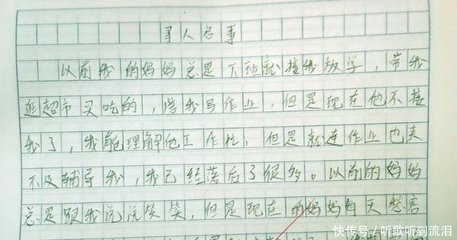 寻人启事
以前我的妈妈总是下班就接我放学，带我
逛超市买吃的，陪我写作业，但是现在他不接
我了，我能理解他工作忙，但是就连作业也来
不及辅导我，我已经落后了很多。以前的妈妈
总是跟我说说笑笑，但是现在的妈妈每天愁容
快传号/听歌听到流泪